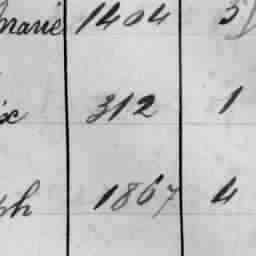 marié 1404 5
x 312 1
ph 1867 4